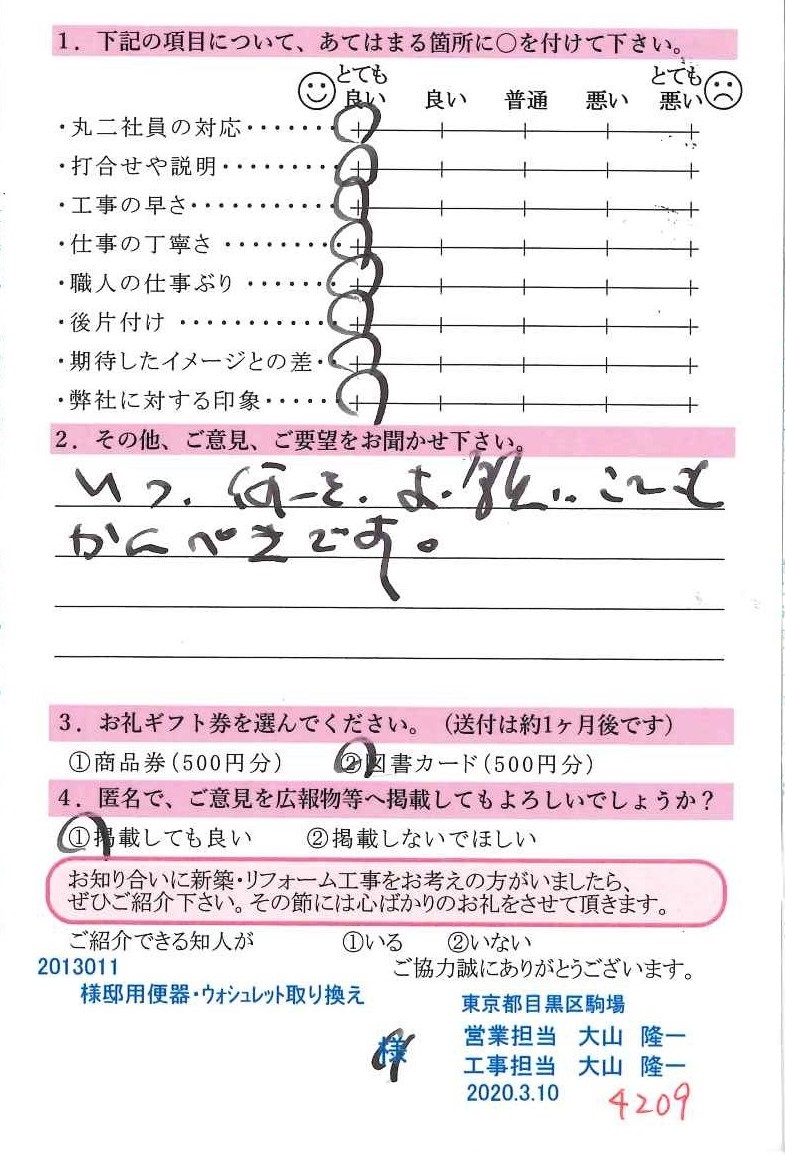 1．下記の項目について、あてはまる箇所に○を付けて下さい。
とても良い 良い 普通 悪い とても悪い
・丸二社員の対応・・・・・・・
・打合せや説明・・・・・・・・
・工事の早さ・・・・・・・・・・
・仕事の丁寧さ ・・・・・・・・
・職人の仕事ぶり ・・・・・・
・後片付け ・・・・・・・・・・・
・期待したイメージとの差・・
・弊社に対する印象・・・・・
2．その他、ご意見、ご要望をお聞かせ下さい。
いつ、何を、お願いしても
かんぺきです。
3．お礼ギフト券を選んでください。（送付は約1ヶ月後です）
①商品券（500円分） ②図書カード（500円分）
4．匿名で、ご意見を広報物等へ掲載してもよろしいでしょうか？
①掲載しても良い ②掲載しないでほしい
お知り合いに新築・リフォーム工事をお考えの方がいましたら、
ぜひご紹介下さい。その節には心ばかりのお礼をさせて頂きます。
ご紹介できる知人が ①いる ②いない
2013011 ご協力誠にありがとうございます。
様邸用便器・ウォシュレット取り換え
東京都目黒区駒場
様 営業担当 大山 隆一
工事担当 大山 隆一
2020.3.10
4209